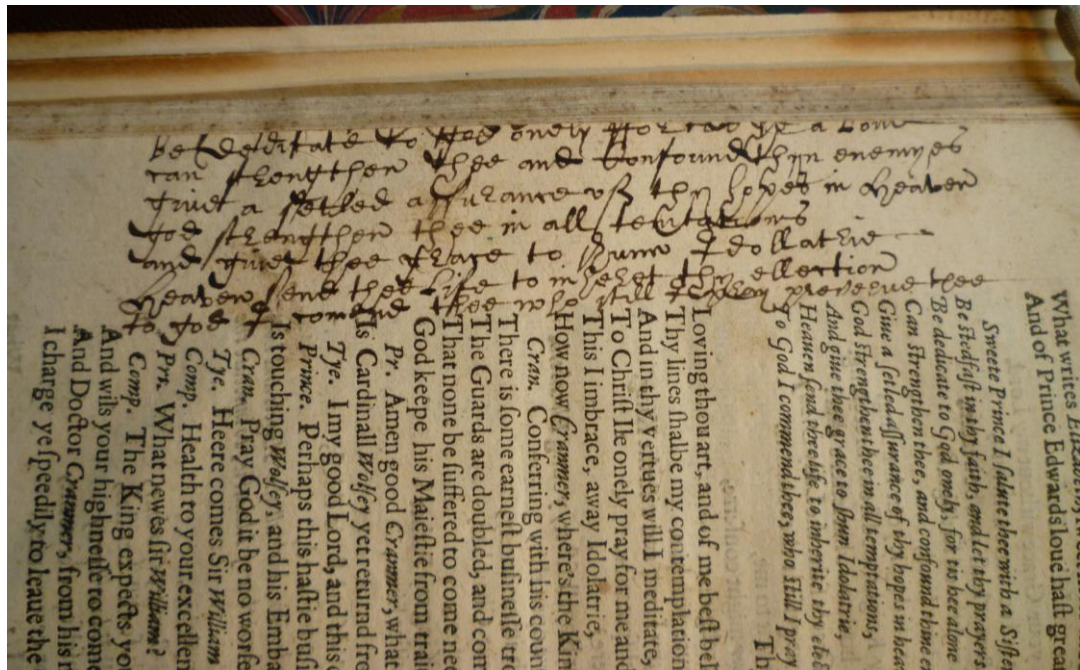 be dedicate to god onely ffor tis he a lone
can strengthen thee and Confound thyn enemyes
giue a setled assurance of thy hopes in heaven
god strengthen thee in all temtations
and giue thee grace to shunn Idollatrie
heaven send thee life to inheret thy ellection
to god I comend thee who still I pray preserve thee
What writes
And of Prince Edwards loue haſt grea
Sweete Prince I ſalute thee with a Siſt
Be ſtedfaſt in thy faith, and let thy prayers
Be dedicate to God onely, for tis hee alone
Can ſtrengthen thee, and confound thine e
Giue a ſetled aſſurance of thy hopes in hea
God ſtrengthen thee in all temptations,
And giue thee grace to ſhun Idolatrie,
Heauen ſend thee life to inherite thy elect
To God I commend thee, who ſtill I pray
Th
Loving thou art, and of me beſt bel
Thy lines ſhalbe my contemplation
And in thy vertues will I meditate,
To Chriſt Ile onely pray for me and
This I imbrace, away Idolatrie,
How now Cranmer, where's the Kin
Cran. Conferring with his coun
There is ſome earneſt buſineſſe tro
The Guards are doubled, and com
That none be ſuffered to come nee
God keepe his Maieſtie from trai
Pr. Amen good Cranmer, what
Is Cardinall Wolſey yet returnd fro
Tye. I my good Lord, and this
Prince. Perhaps this haſtie buſi
Is touching Wolſey, and his Emba
Cran. Pray God it be no worſe
Tye. Here comes Sir William
Comp. Health to your excellen
Prn. What newes ſir William?
Comp. The King expects yo
And wils your highneſſe to come
And Doctor Cranmer, from his
I charge ye ſpeedily to leaue the